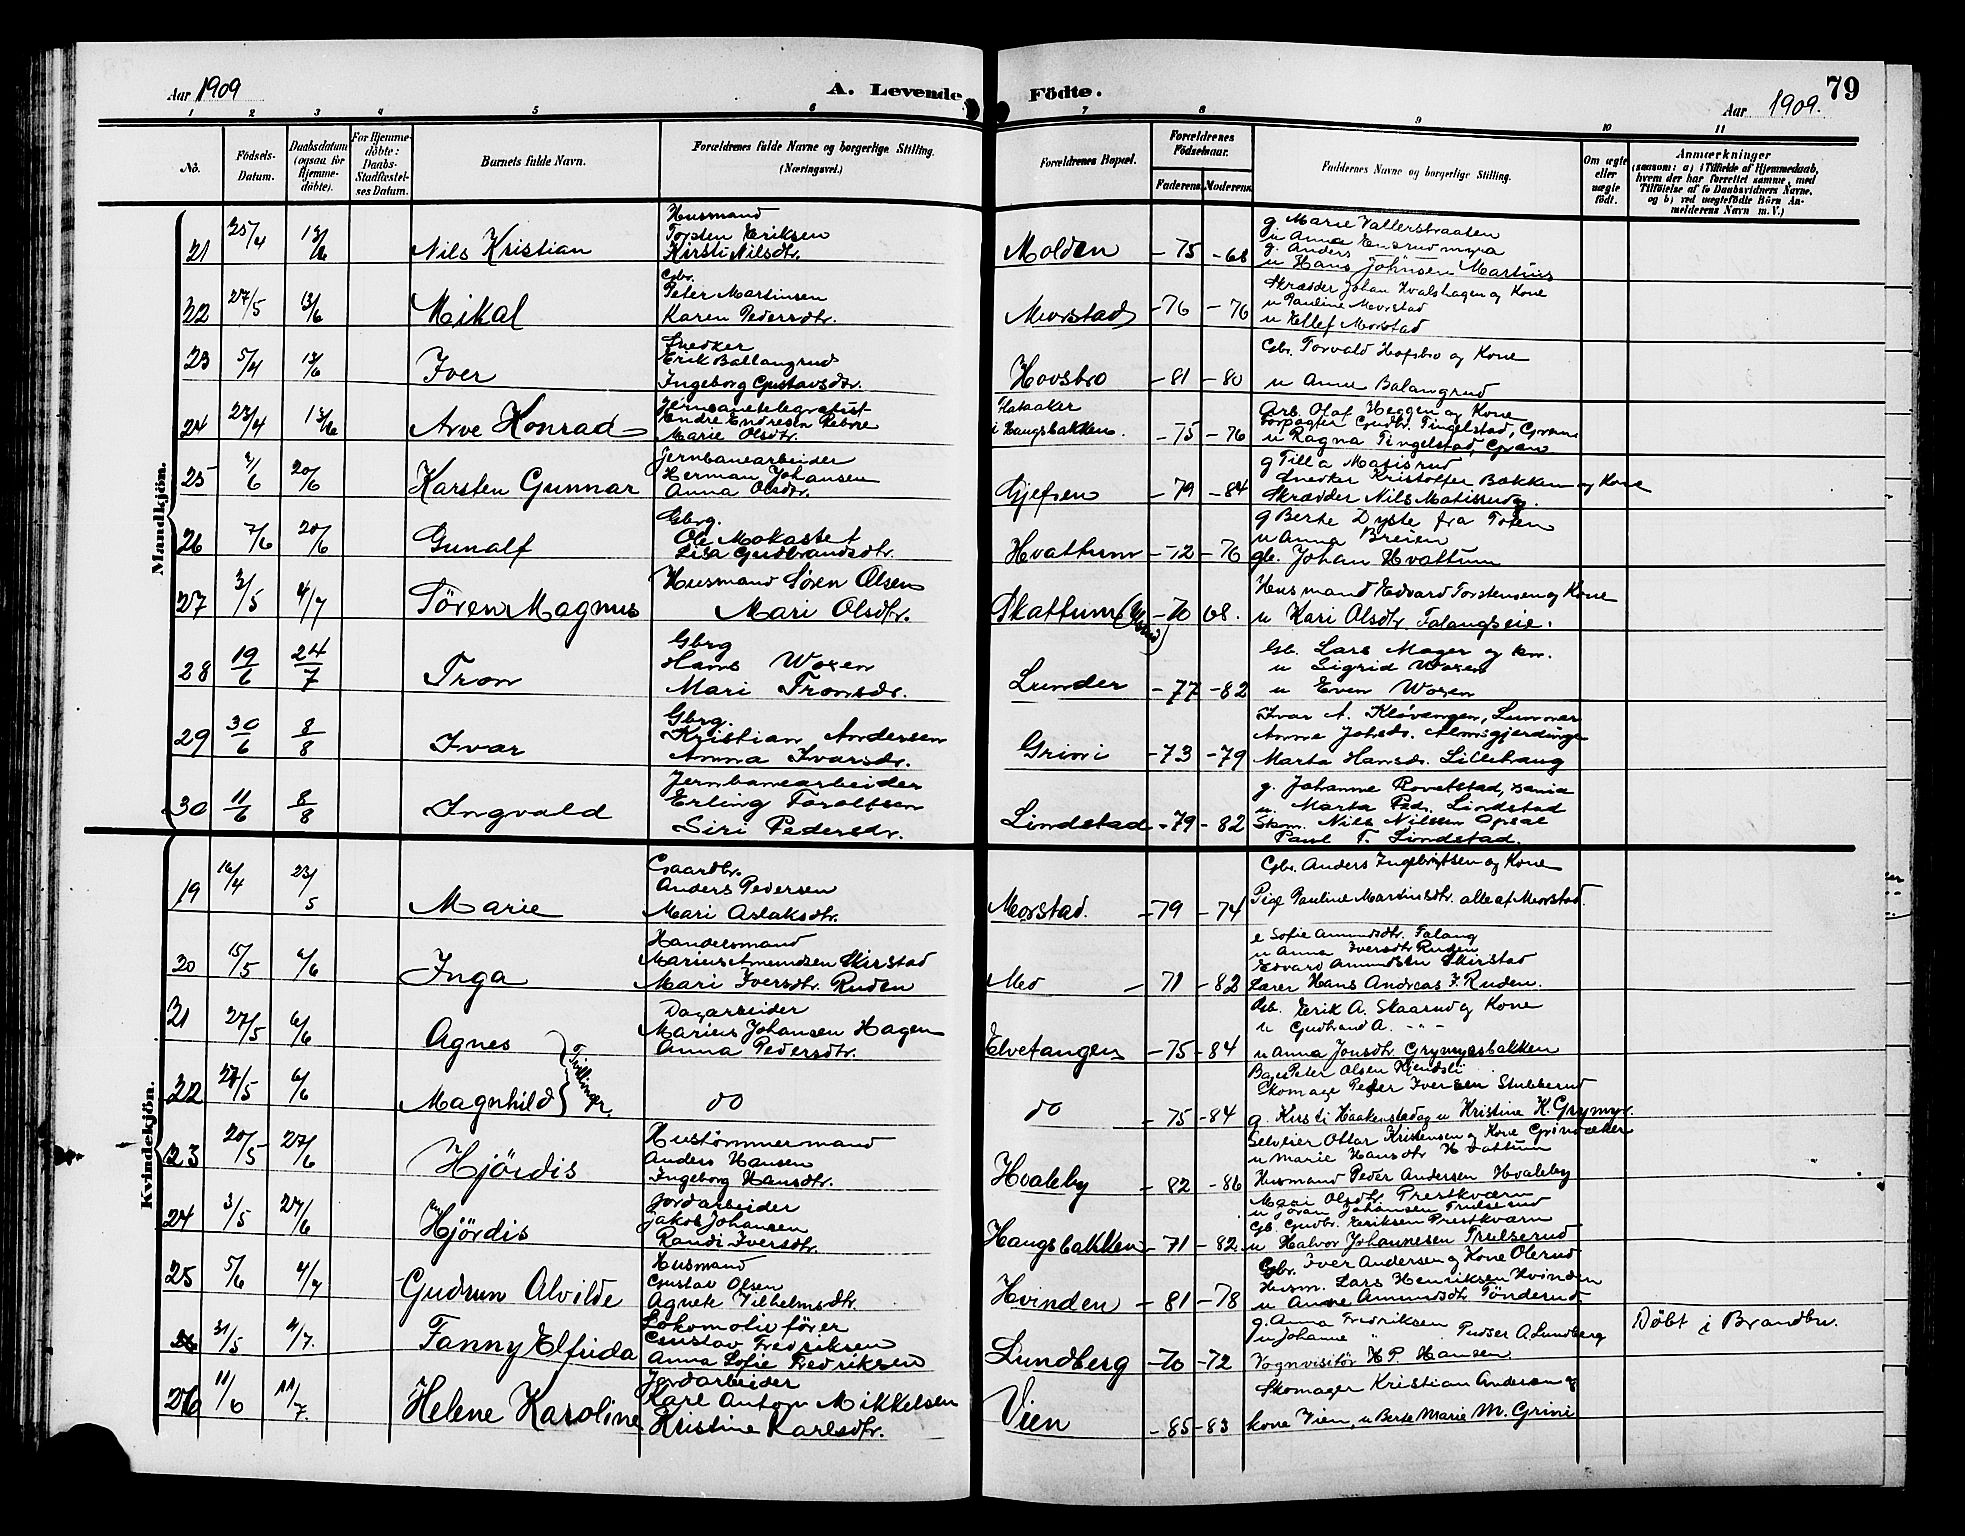 Aar 1909
A. Levende Födte.
Aar 1909.
79
1 2 3 4 5 6 7 8 9 10 11
No.
Födsels-Datum.
Daabsdatum (ogsaa for Hjemme-döbte).
For Hjemme-döbte: Daabs-Stadfæstel-ses Datum.
Barnets fulde Navn.
Forældrenes fulde Navne og borgerlige Stilling. (Næringsvei.)
Forældrenes Bopæl.
Forældrenes Födselsaar.
Faderens. Moderens.
Faddernes Navne og borgerlige Stilling.
Om ægte eller uægte födt.
Anmærkninger
(saasom: a) i Tilfælde af Hjemmedaab, hvem der har forrettet samme, med Tilföielse af to Daabsvidners Navne, og b) ved uægtefödte Börn An-melderens Navn m. V.)
Mandkjön.
21 25/4 13/6 Nils Kristian
Husmand
Torsten Eriksen
Kirsti Nilsdtr.
Molden -75 -68
g Marie Vallerstraaten
u Anna Ensrudmyra
g. Anders
u Hans Johnsen Martins
22 27/5 13/6 Mikal
Gbr.
Peter Martinsen
Karen Pedersdtr.
Morstad -76 -76
Skrædder Johan Hvalshagen og Kone
u Pauline Morstad
u Ellef Morstad
23 5/4 13/6 Iver
Snedker
Erik Ballangrud
Ingeborg Gustavsdtr.
Hovsbro -81 -80
Gbr. Torvald Hofsbro og Kone
u Anne Balangrud
24 23/4 13/6 Arve Konrad
Jernbanetelegrafist
Endre Endresen
Marie Olsdtr.
i Haugsbakken. -75 -76
Arb. Olaf Heggen og Kone
Forpagter Gudbr. Tingelstad, Gran
u Ragna Tingelstad, Gran
25 2/6 20/6 Karsten Gunnar
Jernbanearbeider
Herman Johansen
Anna Olsdtr.
Gjefsen -79 -84
g Tilla Matisrud
Snedker Kristoffer Bakken og Kone
Skrædder Nils Matisrud
26 7/6 20/6 Gunalf
Gbrg.
Ole Mokastet
Lisa Gudbrandsdtr.
Hvattum -72 -76
g Berte Dyste fra Toten
u Anna Breien
gb. Johan Hvattum
27 3/5 4/7 Sören Magnus
Husmand Sören Olsen
Mari Olsdtr.
Skattum -70 68.
Husmand Edvard Torstensen og Kone
u Kari Olsdtr Falangseie.
28 19/6 24/7 Tron
Gbrg
Hans Woxen
Mari Tronsdr.
Lunder -77 -82
Gb. Lars Mager og kn.
u Sigrid Woxen
u Even Woxen
29 30/6 8/8 Ivar
Gbrg.
Kristian Andersen
Anna Ivarsdr.
Grini -73 -79
Ivar A. Klövengen, Lunner
Anne Johsdr. Almsgjerdingen
Marta Hansdr. Lillehaug
30 11/6 8/8 Ingvald
Jernbanearbeider
Erling Toroltsen
Siri Pedersdr.
Lindstad -79 -82
g. Johanne Rovetstad,
u. Marta Ped. Lindstad
Skm. Nils Nilsen Opsal
Paul T. Lindstad.
Kvindekjön.
19 16/4 23/5 Marie
Gaardbr.
Anders Pedersen
Mari Aslaksdtr.
Morstad. -79 -74
Gbr. Anders Ingebrigtsen og Kone
Pige Pauline Martinsdtr. alle af Morstad.
20 15/5 6/6 Inga
Handelsmand
Marius Amundsen Kirstad
Mari Iversdtr. Ruden
Mo - 71 -82
e Sofie Amundsdtr. Falang
u Anna Iversdtr Ruden
Edvard Amundsen Kirstad
Lærer Hans Andreas I. Ruden.
21 27/5 6/6 Agnes
Dagarbeider
Marius Johansen Hagen
Anna Pedersdtr.
Elvetangen -75 -84
Gb. Erik A. Skaarud og Kone
u Gudbrand A. - " -
u Anna Jonsdtr Grymyrsbakken
22 27/5 6/6 Magnhild } Tvillinger.
do
do -75 -84
Bager Peter Olsen Hjendsli
Skomager Peder Iversen Stubberud
g. Kirsti Haakenstad og u Kristine K. Grymyr.
23 20/5 27/6 Hjördis
Hustömmermand
Anders Hansen
Ingeborg Hansdtr.
Hvaleby - 82 - 86
Selveier Ottar Kristensen og Kone Grindaker
u Marie Hansdtr Hvattum
Husmand Peder Andersen Hvaleby
24 3/5 27/6 Hjördis
Jordarbeider
Jakob Johansen
Randi Iversdtr.
Haugsbakken -71 -82
Mari Olsdtr. Prestkværn
u Jöran Johansen Trulserud
Gb. Gudbr. Eriksen Prestkværn
u Halvor Johannesen Trulserud
25 5/6 4/7 Gudrun Alvilde
Husmand
Gustav Olsen
Agnete Vilhelmsdtr.
Hvinden -81 -78
Gbr. Iver Andersen og Kone Olerud
Husm. Lars Henriksen Hvinden
u Anne Amundsdtr Tönderud
26 31/5 4/7. Fanny Elfrida
Lokomotivförer
Gustav Fredriksen
Anna Sofie Fredriksen
Lundberg -70 -72
g. Anna Fredriksen
u Johanne " Pudser A. Lundberg
Vognvisitör H. P. Hansen.
Döbt i Brandbu.
26 11/6 11/7. Helene Karoline
Jordarbeider
Karl Anton Mikkelsen
Kristine Karlsdtr.
Vien -85 -83
Skomager Kristian Andersen og
kone Vien, u Berte Marie M. Grini